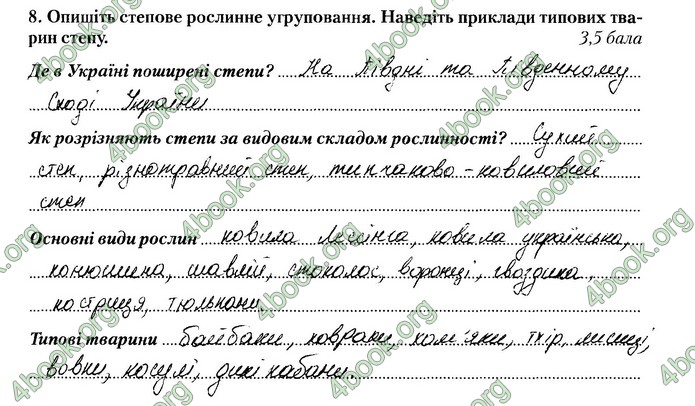 8. Опишіть степове рослинне угруповання. Наведіть приклади типових тва-
рин степу. 3,5 бала
Де в Україні поширені степи? На Півдні та Південному
Сході України
Як розрізняють степи за видовим складом рослинності? Сухий
степ, різнотравний степ, типчаково-ковиловий
степ
Основні види рослин ковила Лессінга, ковила українська,
конюшина, шавлій, стоколос, воронці, гвоздика,
костриця, тюльпани
Типові тварини байбаки, ховрахи, хом'яки, тхір, лисиці,
вовки, косулі, дикі кабани.
4book.org